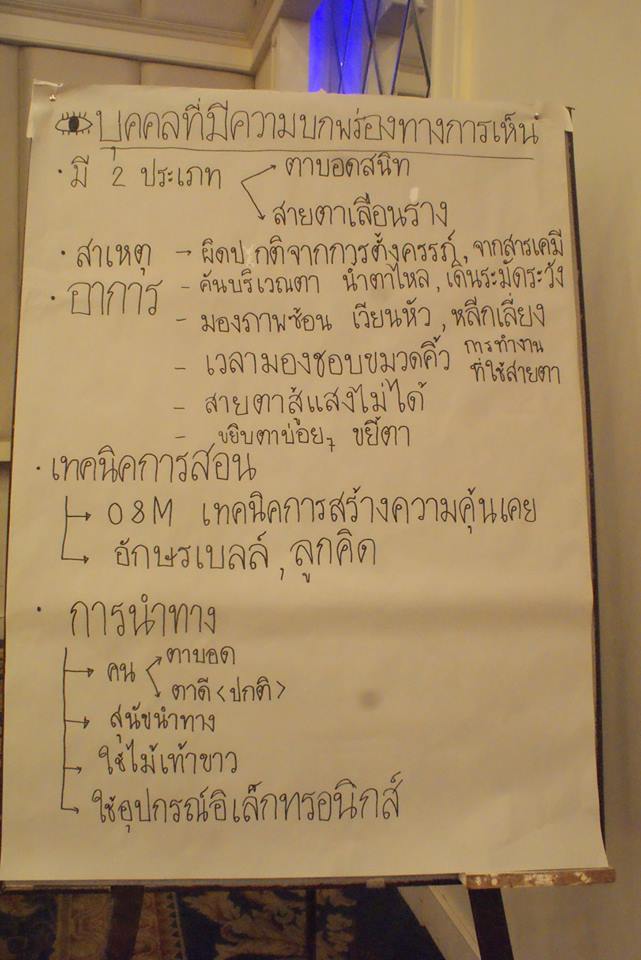 บุคคลที่มีความบกพร่องทางการเห็น
· มี 2 ประเภท ตาบอดสนิท
สายตาเลือนราง
· สาเหตุ → ผิดปกติจากการตั้งครรภ์, จากสารเคมี
· อาการ - คันบริเวณตา น้ำตาไหล, เดินระมัดระวัง
- มองภาพซ้อน เวียนหัว, หลีกเลี่ยง
- เวลามองชอบขมวดคิ้ว การทำงาน
ที่ใช้สายตา
- สายตาสู้แสงไม่ได้
- ขยิบตาบ่อยๆ ขยี้ตา
· เทคนิคการสอน
→ O&M เทคนิคการสร้างความคุ้นเคย
→ อักษรเบลล์, ลูกคิด
· การนำทาง
→ คน ตาบอด
ตาดี <ปกติ>
→ สุนัขนำทาง
→ ใช้ไม้เท้าขาว
→ ใช้อุปกรณ์อิเล็กทรอนิกส์